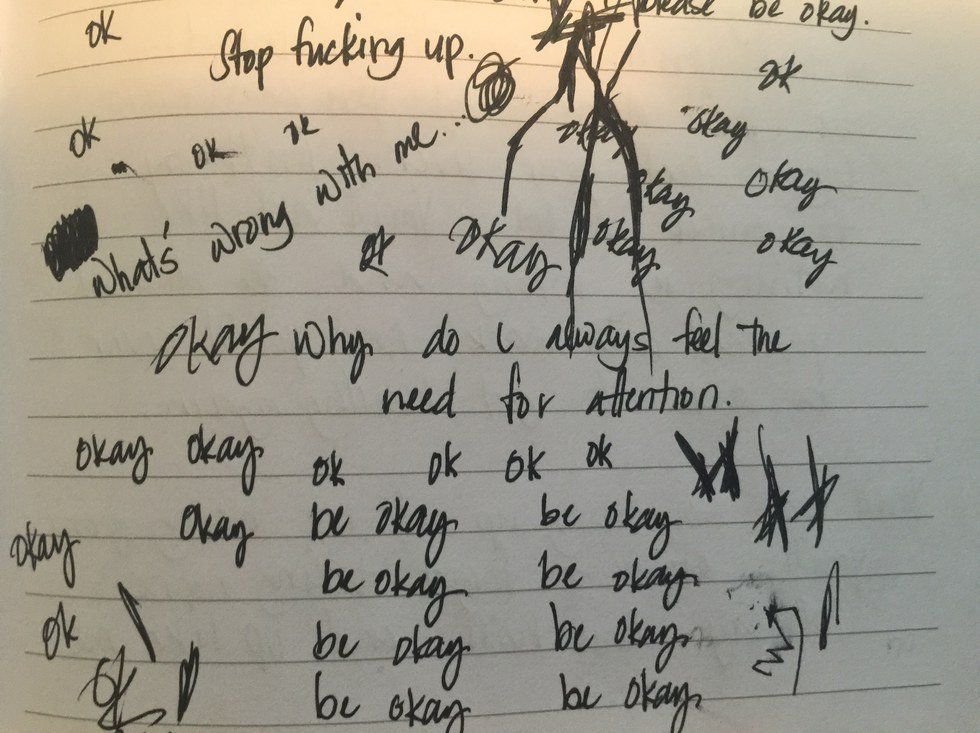 please be okay.
ok
Stop fucking up.
ok
ok
ok ok
okay okay
What's wrong with me...
okay okay
ok okay okay okay
okay Why do i always feel the
need for attention.
okay okay ok ok ok ok
okay okay be okay be okay
be okay be okay
ok be okay be okay
ok be okay be okay